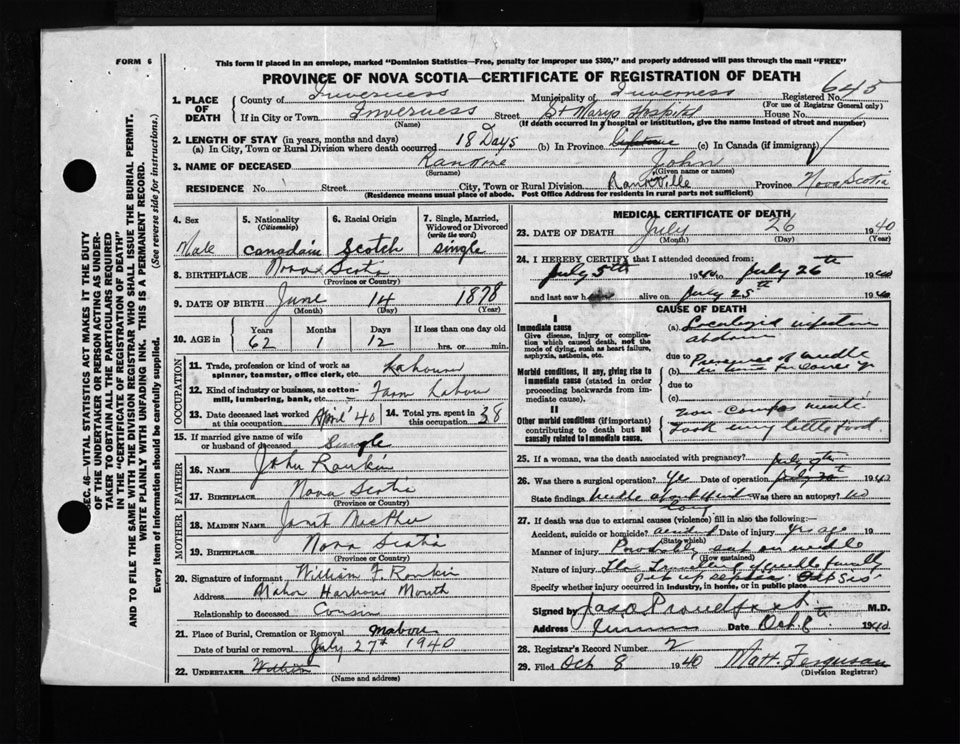 FORM 6
This form if placed in an envelope, marked "Dominion Statistics—Free, penalty for improper use $300," and properly addressed will pass through the mail "FREE"
PROVINCE OF NOVA SCOTIA—CERTIFICATE OF REGISTRATION OF DEATH
SEC. 46—VITAL STATISTICS ACT MAKES IT THE DUTY
OF THE UNDERTAKER OR PERSON ACTING AS UNDER-
TAKER TO OBTAIN ALL THE PARTICULARS REQUIRED
IN THE "CERTIFICATE OF REGISTRATION OF DEATH"
AND TO FILE THE SAME WITH THE DIVISION REGISTRAR WHO SHALL ISSUE THE BURIAL PERMIT.
WRITE PLAINLY WITH UNFADING INK. THIS IS A PERMANENT RECORD.
Every item of Information should be carefully supplied. (See reverse side for instructions.)
1. PLACE OF DEATH County of Inverness Municipality of Inverness Registered No. 645
(For use of Registrar General only)
If in City or Town Inverness Street St Marys Hospital House No.
(Name) (If death occurred in a hospital or institution, give the name instead of street and number)
2. LENGTH OF STAY (in years, months and days)
(a) In City, Town or Rural Division where death occurred 18 Days (b) In Province (c) In Canada (if immigrant)
3. NAME OF DECEASED John
(Surname) (Given name or names)
RESIDENCE No. Street City, Town or Rural Division Rankville Province Nova Scotia
(Residence means usual place of abode. Post Office Address for residents in rural parts not sufficient)
4. Sex Male
5. Nationality (Citizenship) Canadain
6. Racial Origin Scotch
7. Single, Married, Widowed or Divorced (write the word) Single
8. BIRTHPLACE Nova Scotia
(Province or Country)
9. DATE OF BIRTH June 14 1878
(Month) (Day) (Year)
10. AGE in Years 62 Months 1 Days 12 If less than one day old hrs. or min.
OCCUPATION
11. Trade, profession or kind of work as spinner, teamster, office clerk, etc.
12. Kind of industry or business, as cotton-mill, lumbering, bank, etc. Farm Labour
13. Date deceased last worked at this occupation April 40
14. Total yrs. spent in this occupation 38
15. If married give name of wife or husband of deceased Single
FATHER
16. NAME John Rankin
17. BIRTHPLACE Nova Scotia
(Province or Country)
MOTHER
18. MAIDEN NAME
19. BIRTHPLACE Nova Scotia
(Province or Country)
20. Signature of informant William F. Rankin
Address Mabou Harbour Mouth
Relationship to deceased Cousin
21. Place of Burial, Cremation or Removal Mabou
Date of burial or removal July 27th 1940
22. UNDERTAKER
(Name and address)
MEDICAL CERTIFICATE OF DEATH
23. DATE OF DEATH July 26 1940
(Month) (Day) (Year)
24. I HEREBY CERTIFY that I attended deceased from:
July 5th 1940 to July 26th 1940
and last saw h alive on July 25th 1940
CAUSE OF DEATH
I
Immediate cause
Give disease, injury or complication which caused death, not the mode of dying, such as heart failure, asphyxia, asthenia, etc.
(a) Localized infection
abdomen
due to
Morbid conditions, if any, giving rise to immediate cause (stated in order proceeding backwards from immediate cause).
(b) of needle
due to
(c)
II
Other morbid conditions (if important) contributing to death but not causally related to immediate cause.
Non-Compos mente
Took very little food
25. If a woman, was the death associated with pregnancy?
26. Was there a surgical operation? Yes Date of operation July 20th 1940
State findings Was there an autopsy? No
27. If death was due to external causes (violence) fill in also the following:—
Accident, suicide or homicide? accident Date of injury Yrs ago 19
(State which)
Manner of injury Probably sat on needle
(How sustained)
Nature of injury The travelling of needle finally
set up sepsis
Specify whether injury occurred in industry, in home, or in public place
Signed by M.D.
Address Date Oct 8th 1940
28. Registrar's Record Number 2
29. Filed Oct 8 1940 Matt. Ferguson
(Division Registrar)